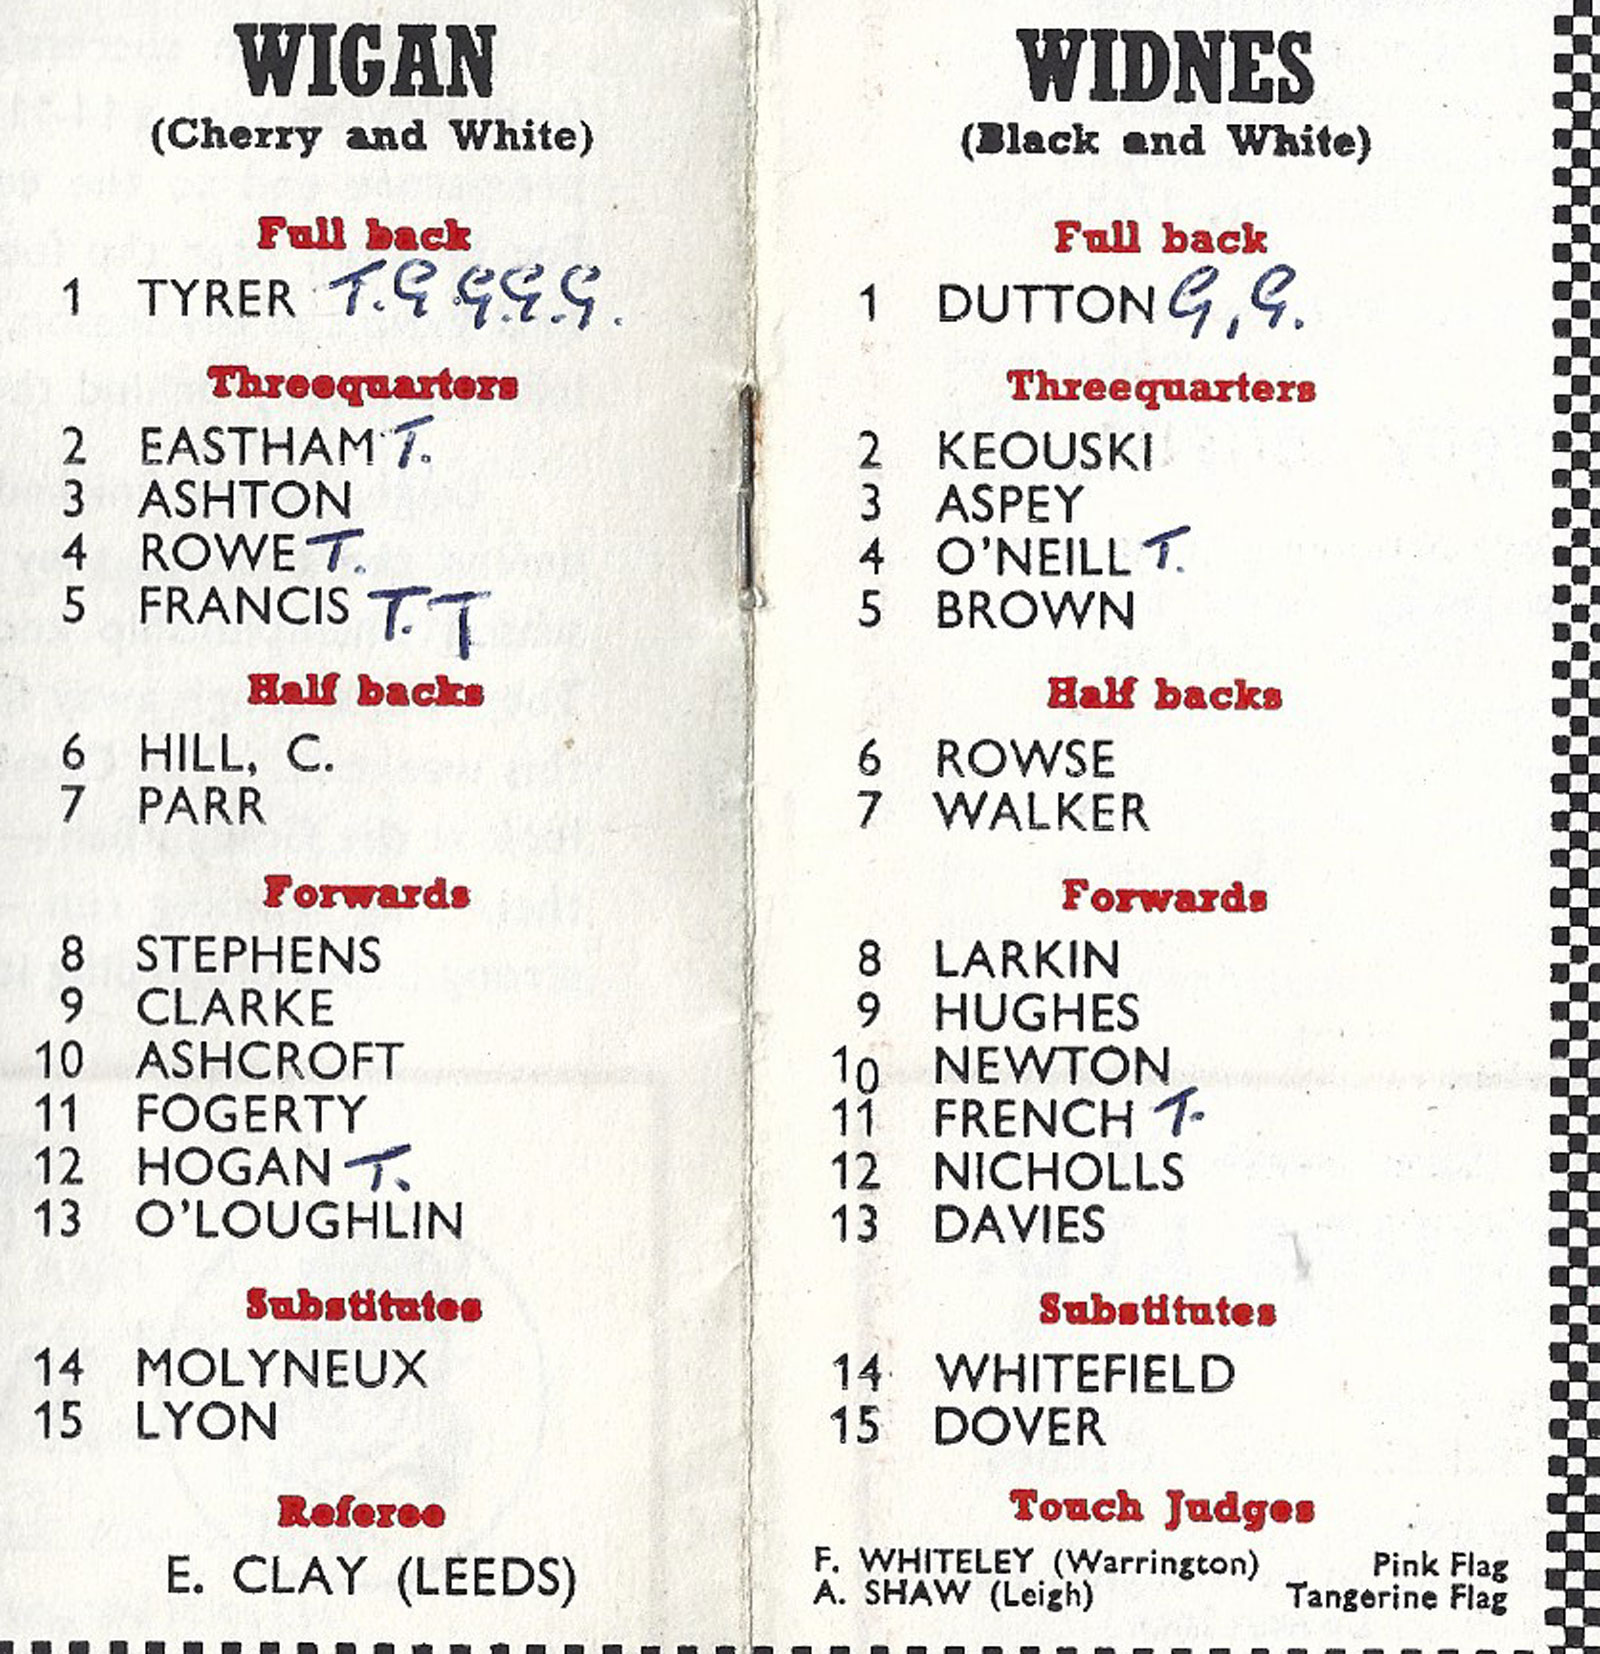 WIGAN
(Cherry and White)
Full back
1 TYRER T. G G. G. G.
Threequarters
2 EASTHAM T.
3 ASHTON
4 ROWE T.
5 FRANCIS T. T
Half backs
6 HILL, C.
7 PARR
Forwards
8 STEPHENS
9 CLARKE
10 ASHCROFT
11 FOGERTY
12 HOGAN T.
13 O'LOUGHLIN
Substitutes
14 MOLYNEUX
15 LYON
Referee
E. CLAY (LEEDS)
WIDNES
(Black and White)
Full back
1 DUTTON G, G.
Threequarters
2 KEOUSKI
3 ASPEY
4 O'NEILL T.
5 BROWN
Half backs
6 ROWSE
7 WALKER
Forwards
8 LARKIN
9 HUGHES
10 NEWTON
11 FRENCH T.
12 NICHOLLS
13 DAVIES
Substitutes
14 WHITEFIELD
15 DOVER
Touch Judges
F. WHITELEY (Warrington) Pink Flag
A. SHAW (Leigh) Tangerine Flag